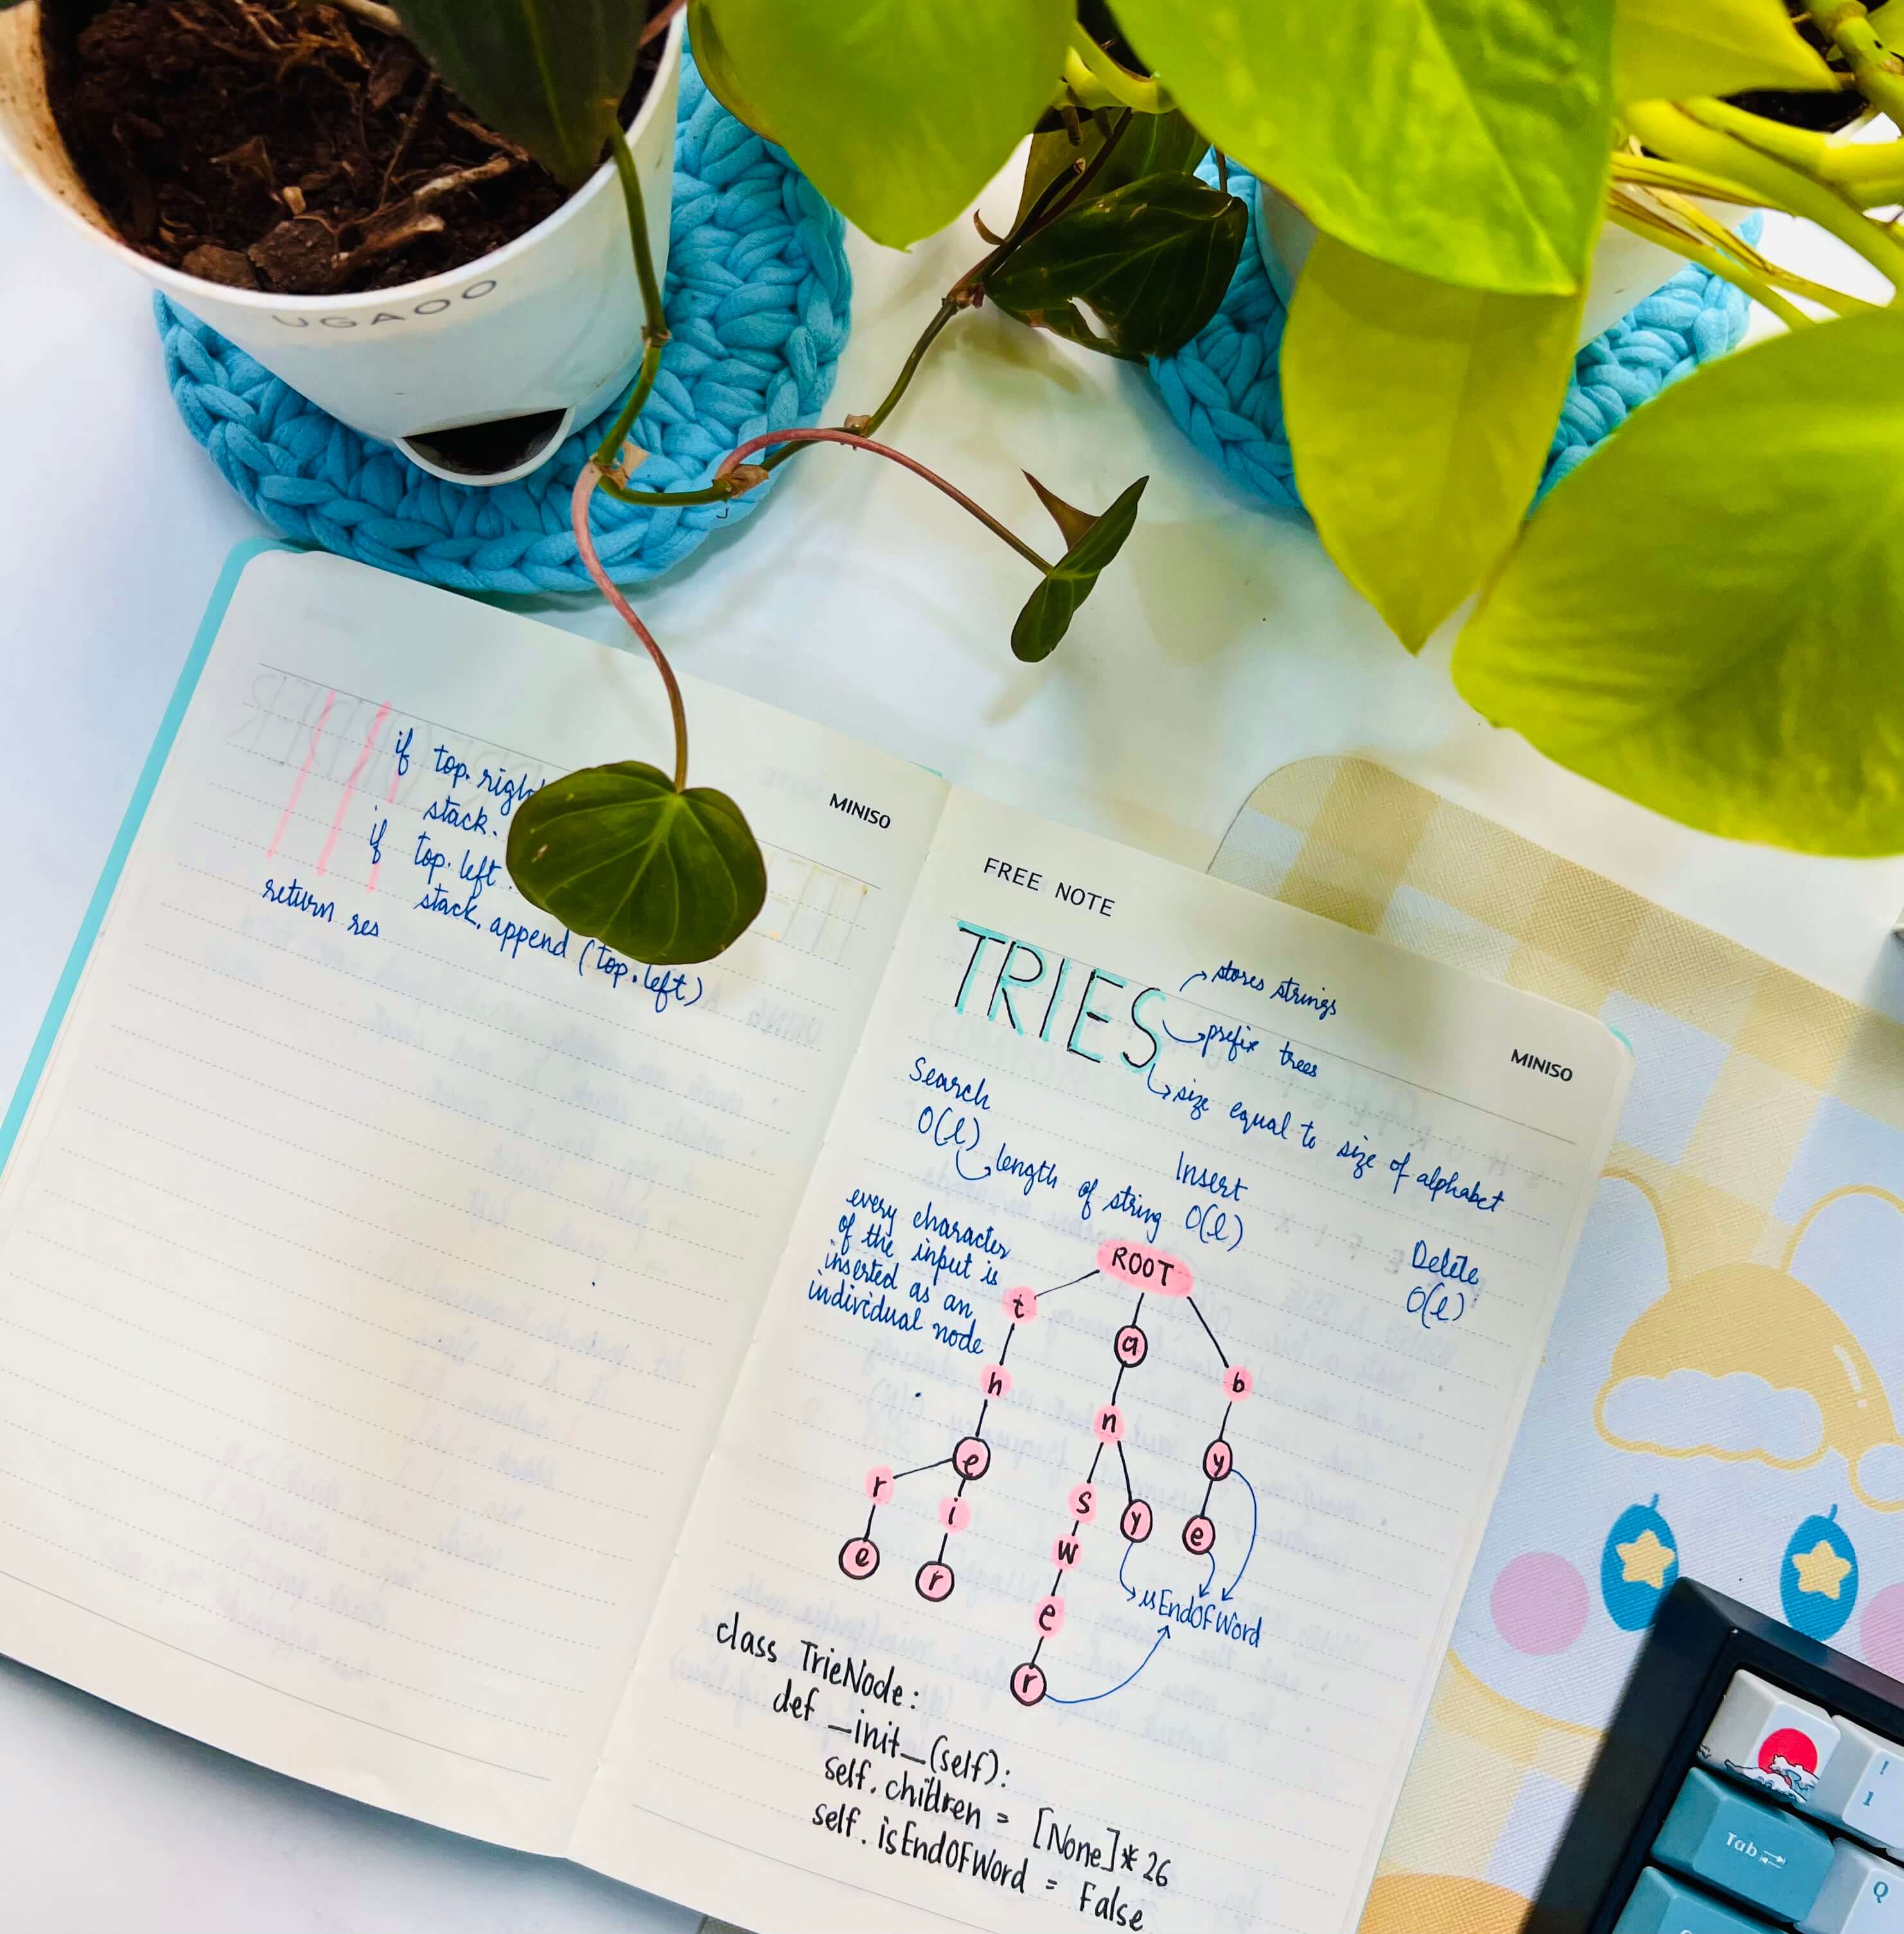 UGAOO
MINISO
if top.right
stack.
if top.left
stack.append(top.left)
return res
FREE NOTE
MINISO
TRIES
stores strings
prefix trees
size equal to size of alphabet
Search
O(l)
length of string
Insert
O(l)
Delete
O(l)
every character
of the input is
inserted as an
individual node
ROOT
t a b
h n y
e s y e
r i w
e r e
r
isEndOfWord
class TrieNode:
def _init_(self):
self.children = [None]*26
self.isEndOfWord = False
!
1
Tab
Q